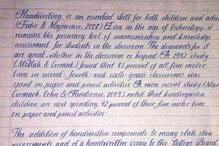 "Handwriting is an essential skill for both children and adults
(Feder & Majnemer, 2007). Even in the age of technology, it
remains the primary tool of communication and knowledge
assessment for students in the classroom. The demands for it
are great, whether in the classroom or beyond. A 1992 study
(McHale & Cermak) found that 85 percent of all fine motor
time in second- fourth- and sixth-grade classrooms was
spent on paper and pencil activities. A more recent study (Marr
Cermak, Cohn & Henderson, 2003) noted that kindergarten
children are now spending 42 percent of their fine motor time
on paper and pencil activities.
The addition of handwritten components to many state
assessments and of a handwritten essay to the College Board